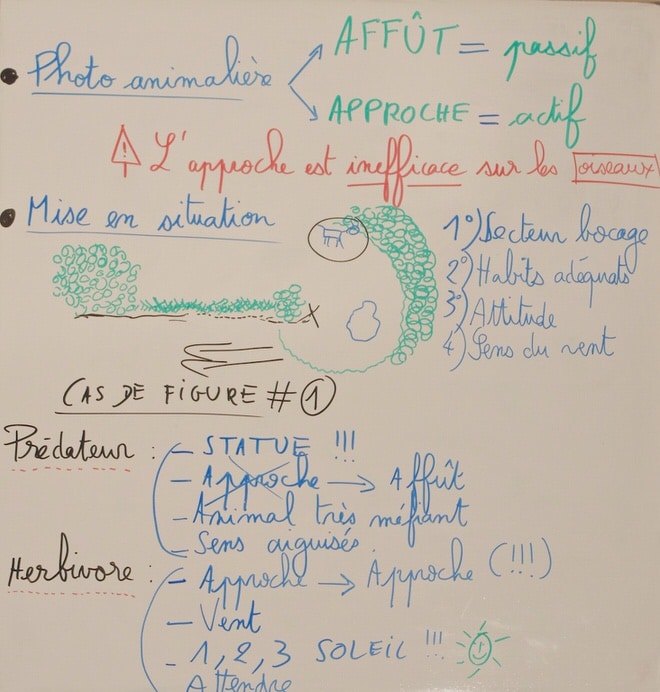 Photo animalière
AFFÛT = passif
APPROCHE = actif
L'approche est inefficace sur les oiseaux
Mise en situation
1°) Secteur bocage
2°) Habits adéquats
3°) Attitude
4) Sens du vent
X
CAS DE FIGURE # 1
Prédateur :
- STATUE !!!
- Approche → Affût
- Animal très méfiant
- Sens aiguisés.
Herbivore :
- Approche → Approche (!!!)
- Vent
- 1, 2, 3 SOLEIL !!!
Attendre